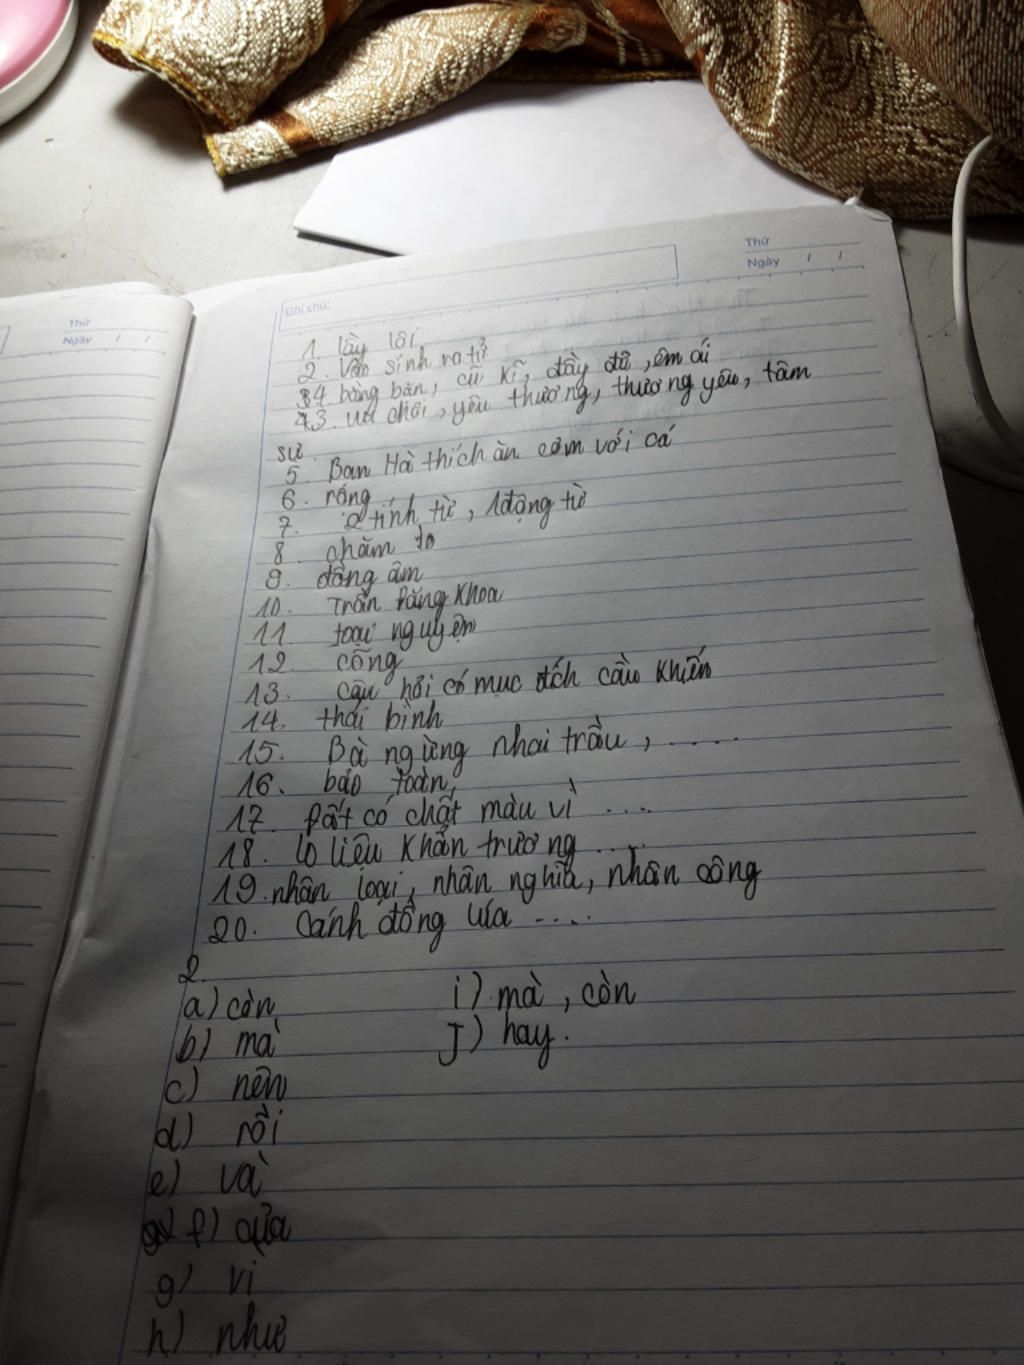 Thứ
Ngày / /
Thứ
Ngày / /
Ghi chú:
1. lầy lội
2. Vào sinh ra tử
4 bàng bàn, cũ kĩ, đầy đủ, êm ái
3. vui chơi, yêu thương, thương yêu, tâm
sự
5. Bạn Hà thích ăn cơm với cá
6. rỗng
7. 2 tính từ, 1 động từ
8. chăm lo
9. đồng âm
10. Trần Đăng Khoa
11 toại nguyện
12. công
13. câu hỏi có mục đích cầu khiến
14. thái bình
15. Bà ngừng nhai trầu, .....
16. bảo toàn
17. Đất có chất màu vì ....
18. Lò liệu khẩn trương .....
19. nhân loại, nhân nghĩa, nhân công
20. Cánh đồng lúa ....
2.
a) còn
i) mà, còn
b) mà
J) hay.
c) nên
d) rồi
e) và
f) của
g) vì
h) như